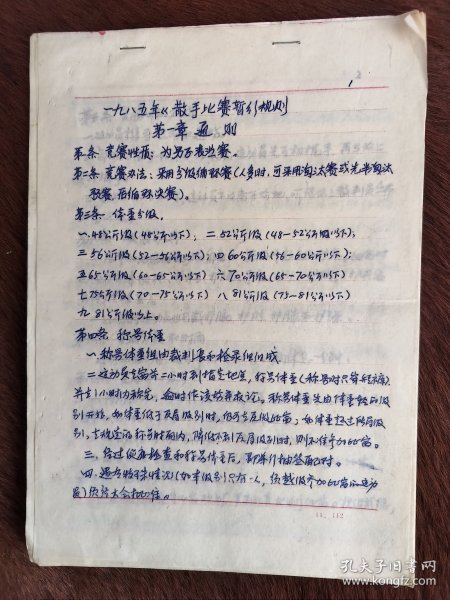 一九八五年《散手比赛暂行规则
第一章 通则
第一条 竞赛性质：为男子表演赛。
第二条 竞赛办法：采用分级循环赛（人多时，可采用淘汰赛或先单淘汰
取赛，后循环决赛）。
第三条 体重分级。
一.48公斤级（48公斤以下）；二52公斤级（48-52公斤级以下）；
三56公斤级（52-56公斤以下）；四60公斤级（56-60公斤以下）
五65公斤级（60-65公斤以下）六70公斤级（65-70公斤以下）
七75公斤级（70-75公斤以下）八81公斤级（75-81公斤以下）
九81公斤级以上。
第四条 称号体重
一.称号体重组由裁判长和检录组组成
二.运动员在赛前二小时到指定地点，称号体重（称号时只穿短裤）
并在1小时内称完，逾时作弃权论。称号体重先由体重轻的级
别开始，如体重低于及属级别时，仍可在原级比赛；如体重超过所属级
别，在规定的称号时间内，降低不到原属级别时，则不准参加比赛。
三、经过医务检查和称号体重后，即举行抽签配对。
四.遇有特殊情况（如某级别只有一人，须越级参加比赛的运动
员）须经大会批准。
孔夫子旧书网
www.kongfz.com